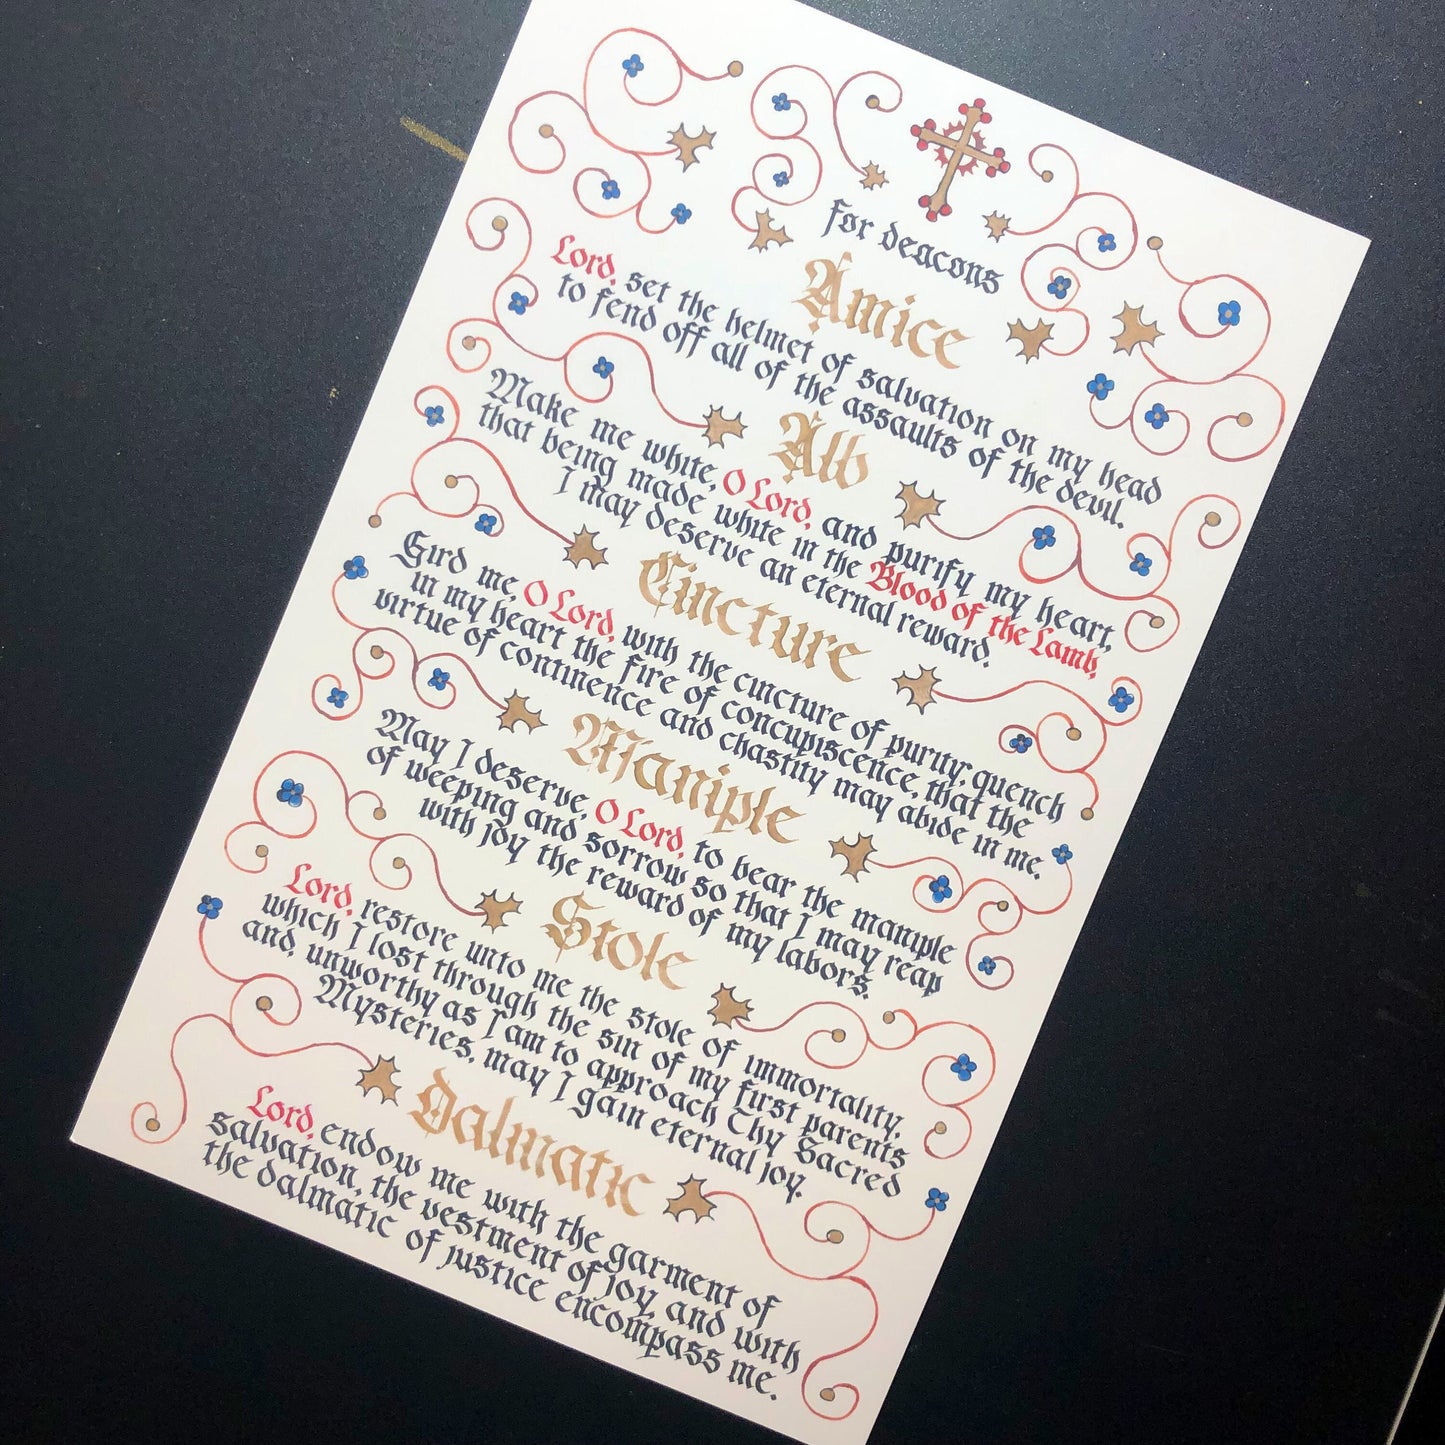 for deacons
Amice
Lord, set the helmet of salvation on my head
to fend off all of the assaults of the devil.
Alb
Make me white, O Lord, and purify my heart,
that being made white in the Blood of the Lamb,
I may deserve an eternal reward.
Cincture
Gird me, O Lord, with the cincture of purity, quench
in my heart the fire of concupiscence, that the
virtue of continence and chastity may abide in me.
Maniple
May I deserve, O Lord, to bear the maniple
of weeping and sorrow so that I may reap
with joy the reward of my labors.
Stole
Lord, restore unto me the stole of immortality,
which I lost through the sin of my first parents
and, unworthy as I am to approach Thy Sacred
Mysteries, may I gain eternal joy.
Dalmatic
Lord, endow me with the garment of
salvation, the vestment of joy, and with
the dalmatic of justice encompass me.